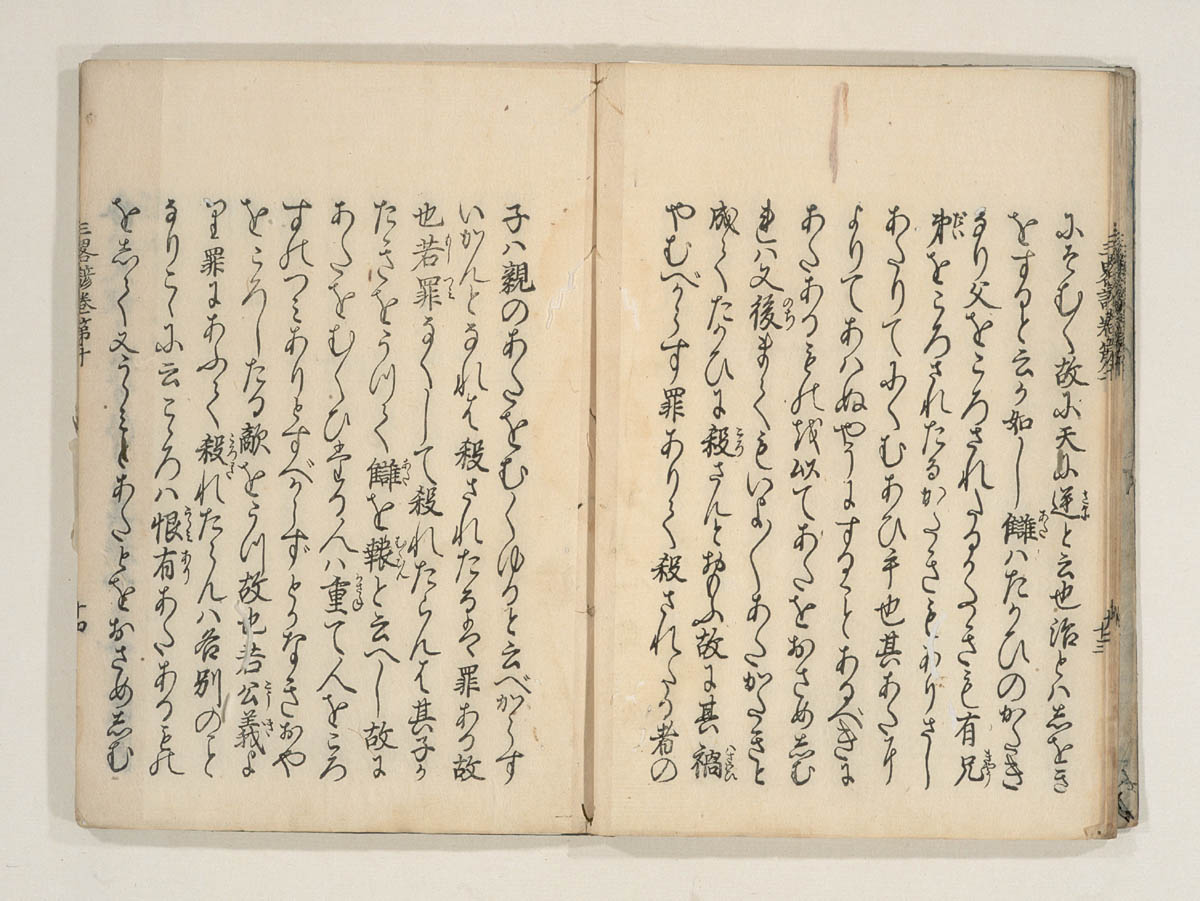 にそむく故に天に逆と云也治とハしをき
をすると云か如し讎ハたかひのかたき
なり父をころされたるかたきも有兄
弟をころされたるかたきもありさし
あたりてにくむあひ手也其あたり
よりてあハぬやうにすることあるべきに
あたあるものを以てあたをおさめしむ
れハ又後まてもいよ〱あたがたきと
成てたかひに殺さんとおもふ故に其禍
やむべからす罪ありて殺されたる者の
子ハ親のあたをむくゆると云べからす
いかんとなれハ殺されたるは罪ある故
也若罪なくして殺れたらんは其子か
たきをうつて讎を報と云へし故に
あたをむくひたる人ハ重て人をころ
すのつミありとすべからずとかなきおや
をころしたる敵をうつ故也若公義よ
り罪にあふて殺れたらんハ各別のこと
なりこゝに云こゝろハ恨有あたあるもの
をして又うらミとあたとをおさめしむ
三畧諺巻第十
十四
十三